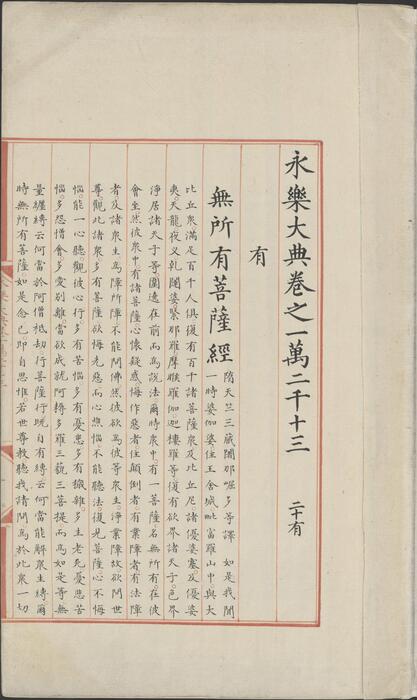 永樂大典卷之一萬二千十三 二十有
有
無所有菩薩經 隋天竺三藏闍那崛多等譯 如是我聞
一時婆伽婆住王舍城毗富羅山中與大
比丘衆滿足百千人俱復有百千諸菩薩衆及比丘尼諸優婆塞及優婆
夷天龍夜叉乾闥婆緊那羅摩睺羅伽迦樓羅等復有欲界諸天子色界
淨居諸天子等圍遶在前而爲說法爾時衆中有一菩薩名無所有在彼
會坐然彼衆中有諸菩薩心懷疑惑悔作惡者住顛倒者有業障者有法障
者及諸衆生爲障所障不能問佛然彼欲爲彼等衆生淨業障故欲問世
尊觀此諸衆多有菩薩欲悔先惡而心燋惱不能聽法復見菩薩心不悔
惱能一心聽觀彼心行多有苦惱多有憂患多有擾雜多主老死憂悲苦
惱多怨憎會多愛別離當欲成就阿耨多羅三藐三菩提而爲如是等無
量纏縛云何當於阿僧祇劫行菩薩行既自有縛云何當能解衆生縛爾
時無所有菩薩如是念已即自思惟若世尊教聽我請問爲於此衆一切